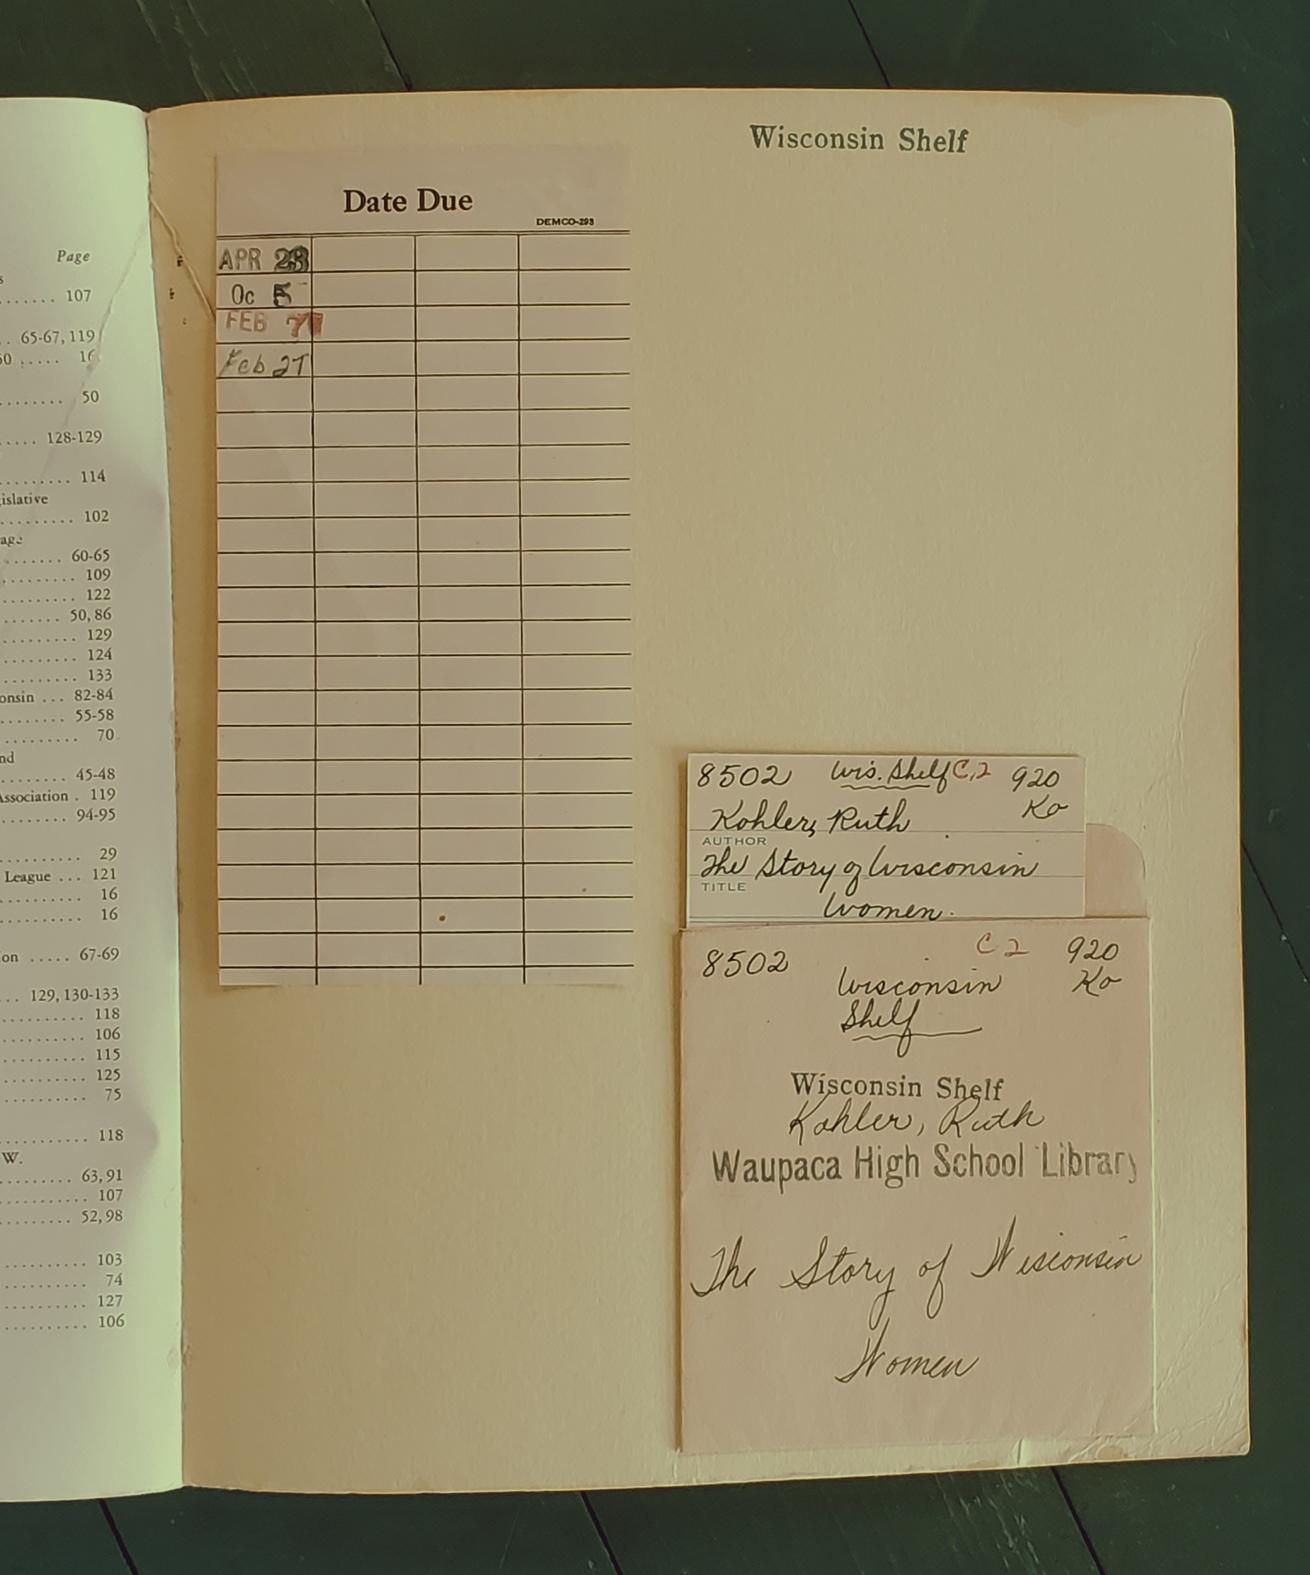 Page
s
....... 107
.. 65-67, 119
60 ..... 16
........ 50
..... 128-129
......... 114
islative
......... 102
age
....... 60-65
.......... 109
.......... 122
....... 50, 86
.......... 129
.......... 124
.......... 133
onsin ... 82-84
......... 55-58
.......... 70
nd
......... 45-48
Association . 119
......... 94-95
.......... 29
League ... 121
.......... 16
.......... 16
on ..... 67-69
... 129, 130-133
.......... 118
.......... 106
.......... 115
.......... 125
.......... 75
........... 118
W.
......... 63, 91
.......... 107
......... 52, 98
.......... 103
.......... 74
.......... 127
.......... 106
Wisconsin Shelf
Date Due
DEMCO-293
APR 28
Oc 5
FEB 7
Feb 27
8502 Wis. Shelf C.2 920
Ko
Kohler, Ruth
AUTHOR
The Story of Wisconsin
TITLE
Women.
8502 C 2 920
Wisconsin Ko
Shelf
Wisconsin Shelf
Kohler, Ruth
Waupaca High School Library
The Story of Wisconsin
Women